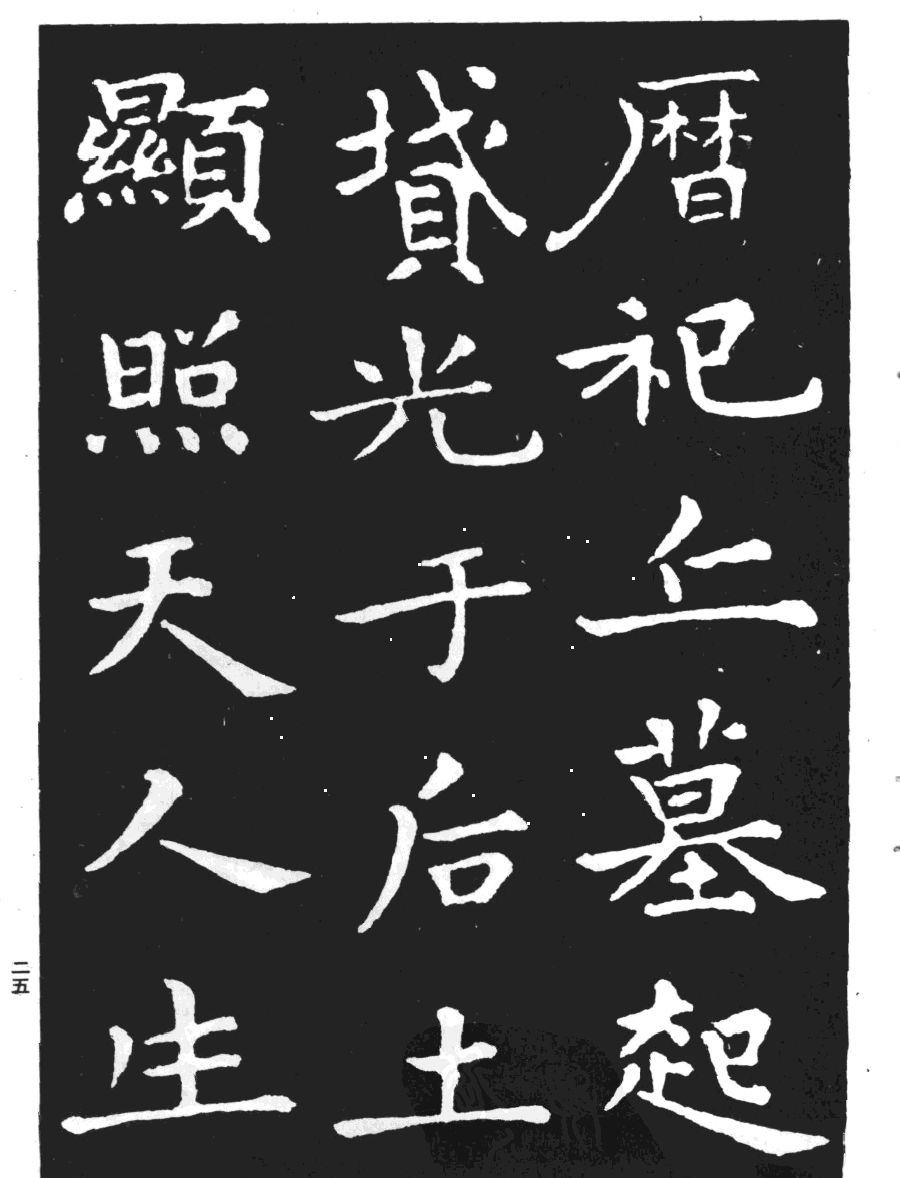 暦祀丘墓起
光于后土
顯照天人生
二五